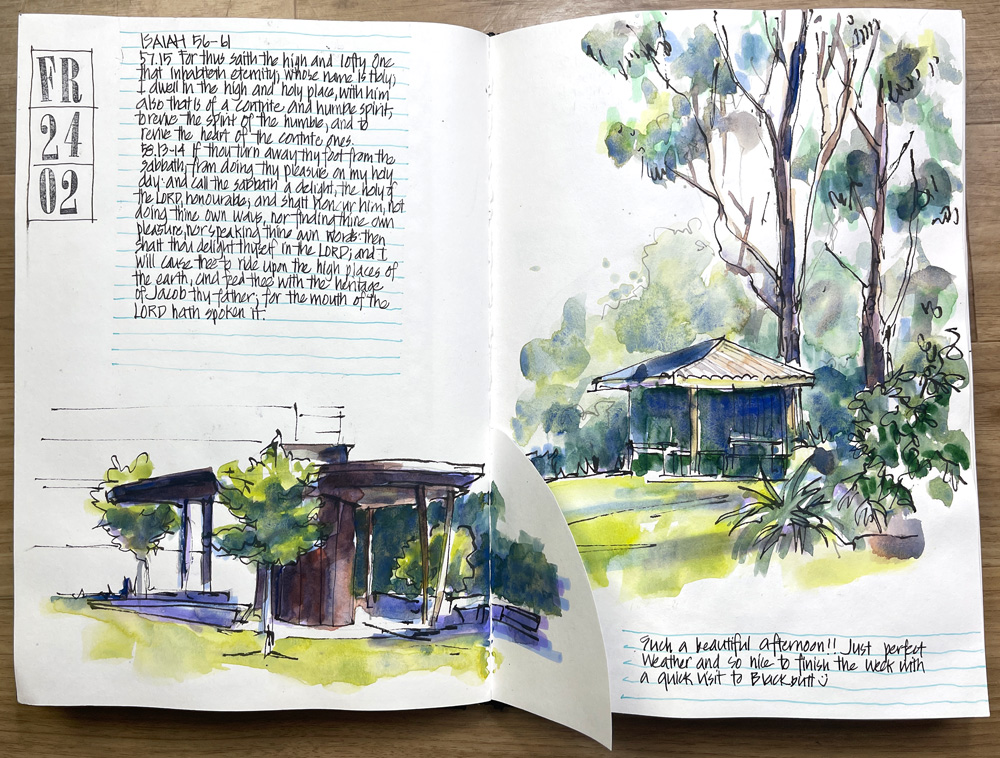 FR
24
02
ISAIAH 56-61
57.15 For thus saith the high and lofty One
that inhabiteth eternity, whose name is Holy;
I dwell in the high and holy place, with him
also that is of a contrite and humble spirit,
to revive the spirit of the humble, and to
revive the heart of the contrite ones.
58.13-14 If thou turn away thy foot from the
sabbath, from doing thy pleasure on my holy
day: and call the sabbath a delight, the holy of
the LORD, honourable; and shalt honour him, not
doing thine own ways, nor finding thine own
pleasure, nor speaking thine own words: then
shalt thou delight thyself in the LORD; and I
will cause thee to ride upon the high places of
the earth, and feed thee with the heritage
of Jacob thy father; for the mouth of the
LORD hath spoken it.
Such a beautiful afternoon!! Just perfect
weather and so nice to finish the week with
a quick visit to Blackbutt